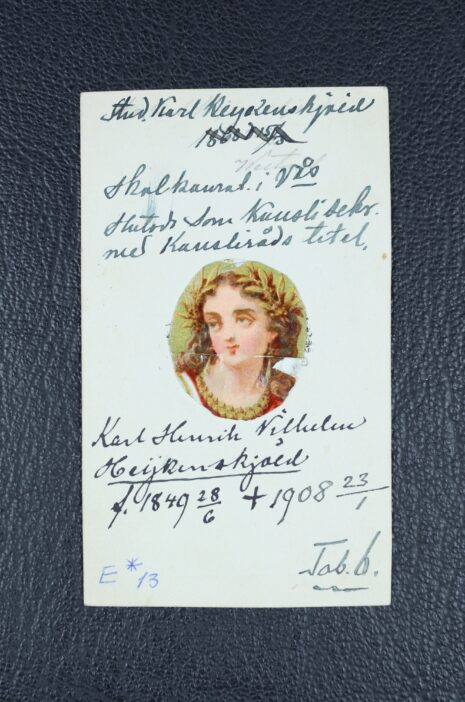 Stud. Karl Heijkenskjöld
Skolkamrat i V:ås
Slutade som Kanslisekr.
med Kansliråds titel.
Karl Henrik Vilhelm
Heijkenskjöld
f. 1849 28/6 + 1908 23/1
Tab. 6.
E * 13